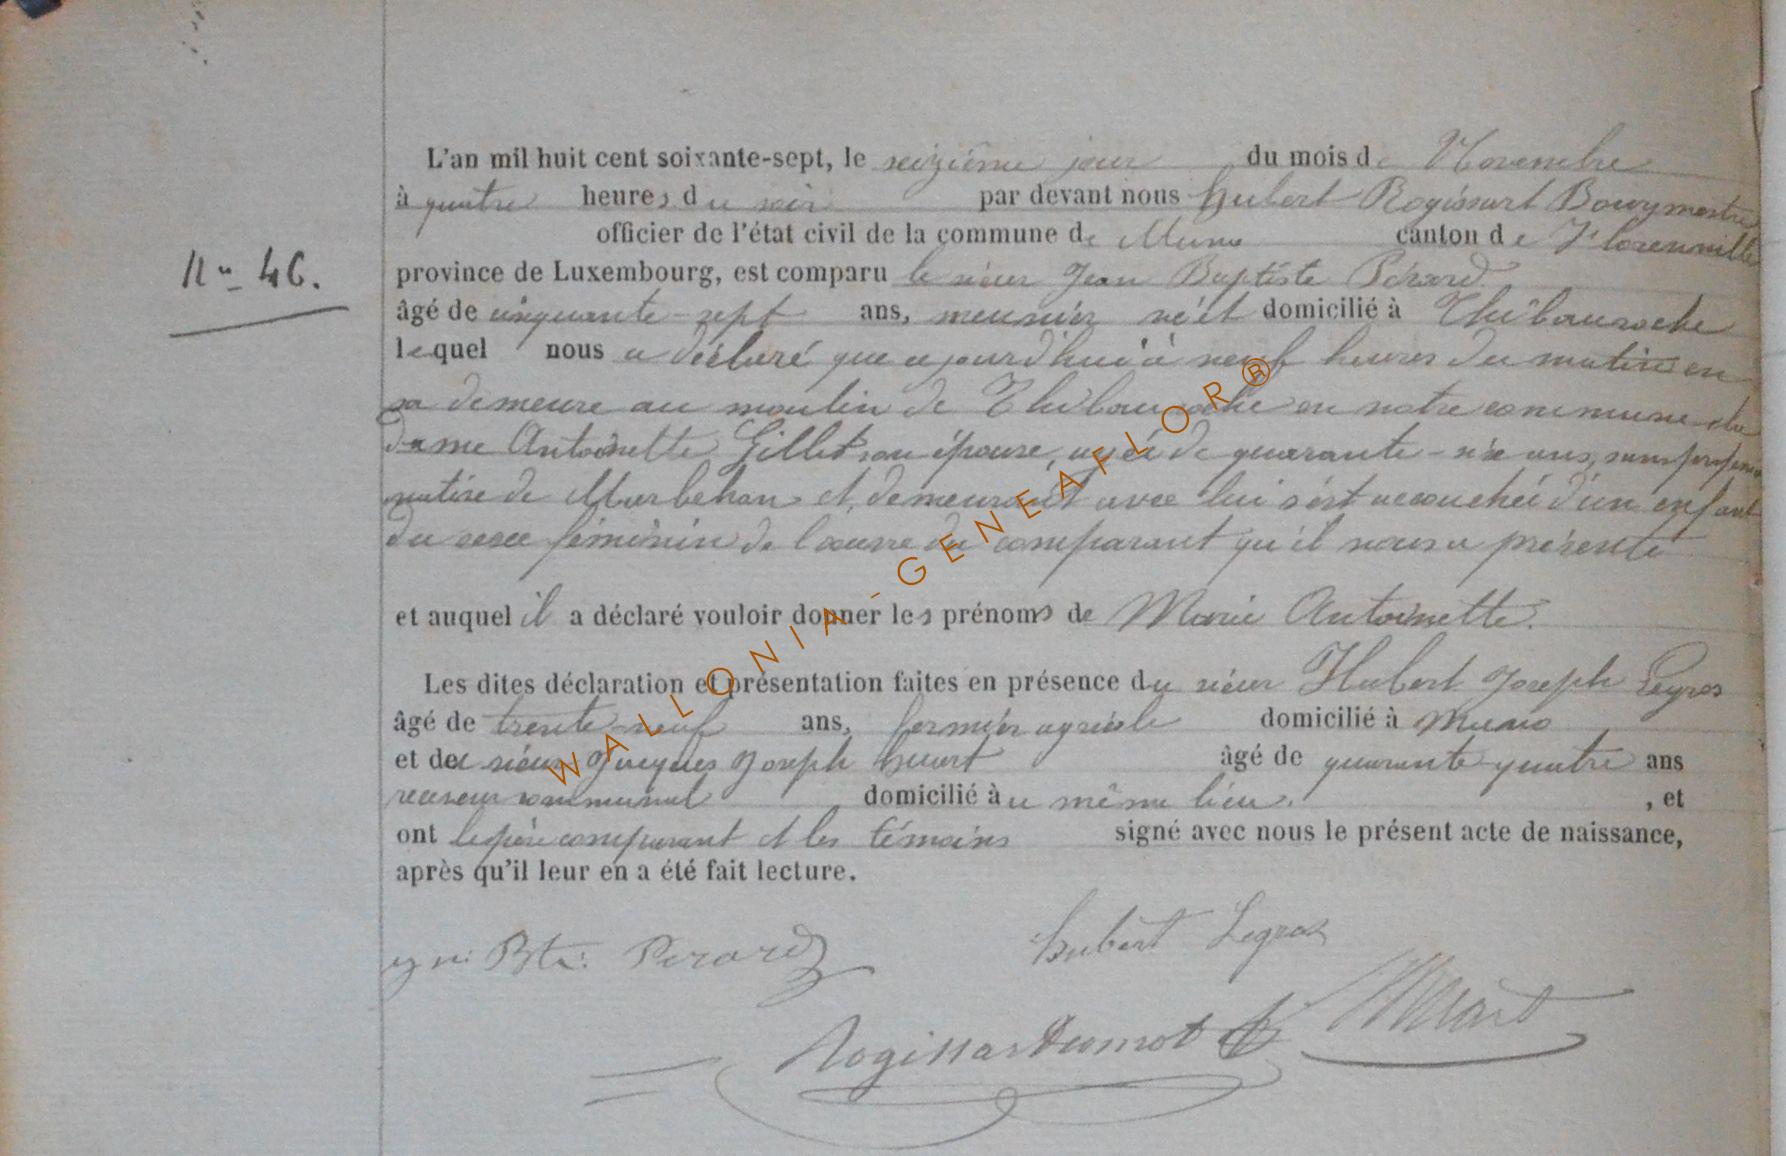 L'an mil huit cent soixante-sept, le seizième jour du mois de Novembre
à quatre heures du soir par devant nous Hubert Rogissart Bourgmestre
officier de l'état civil de la commune de Muno canton de Florenville
province de Luxembourg, est comparu le sieur Jean Baptiste Pérard
âgé de cinquante-sept ans, meunier né et domicilié à Thibauroche
lequel nous a déclaré que cejourd'hui à neuf heures du matin en
sa demeure au moulin de Thibauroche en notre commune la
dame Antoinette Gillet son épouse, agée de quarante-six ans, sans profession
native de Marbehan et demeurant avec lui s'est accouchée d'un enfant
du sexe féminin de l'œuvre du comparant qu'il nous a présenté
N° 46.
et auquel il a déclaré vouloir donner les prénoms de Marie Antoinette.
Les dites déclaration et présentation faites en présence du sieur Hubert Joseph Legros
âgé de trente-neuf ans, fermier agricole domicilié à Muno
et du sieur Jacques Joseph Huart âgé de quarante quatre ans
receveur communal domicilié au même lieu. , et
ont le père comparant et les témoins signé avec nous le présent acte de naissance,
après qu'il leur en a été fait lecture.
Bte: Perard
hubert Legros
Rogissart
Huart
WALLONIA-GENEAFLOR®